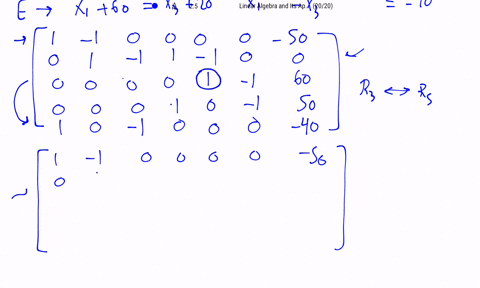 E → X₁ + 60 = X₃ + 20
Linear Algebra and Its Ap... (20/20)
= -10
1 -1 0 0 0 0 -50
0 1 -1 1 -1 0 0
0 0 0 0 1 -1 60
0 0 0 1 0 -1 50
1 0 -1 0 0 0 -40
R₃ ↔ R₅
~ 1 -1 0 0 0 0 -50
0